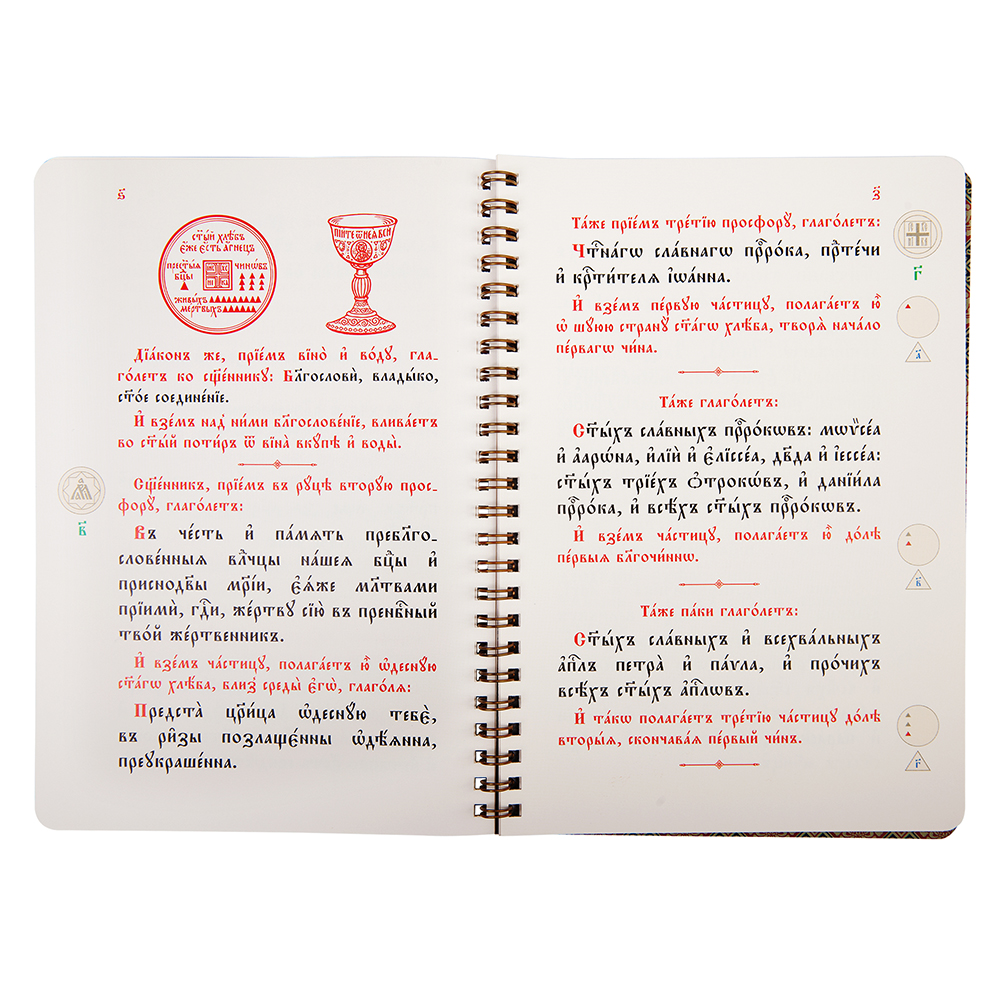 ѕ҃
ст҃ы́й хлѣ́бъ
є҆́же є҆́сть а҆́гнецъ
прест҃ы́ѧ
бц҃ы
чинѡ́въ
живы́хъ
ме́ртвыхъ
ІС ХС
НИ КА
ПІ́ЙТЕ Ѿ НЕѦ̀ ВСЍ
Дїа́конъ же, прїе́мъ вїно̀ и҆ во́дꙋ, гла-
го́летъ ко сщ҃е́нникꙋ: Бл҃гословѝ, влады́ко,
ст҃о́е соедине́нїе.
И҆ взе́мъ над ни́ми бл҃гослове́нїе, влива́етъ
во ст҃ы́й поти́ръ ѿ вїна̀ вкꙋ́пѣ и҆ воды̀.
Сщ҃е́нникъ, прїе́мъ въ рꙋцѣ̀ вторꙋ́ю прос-
форꙋ̀, глаго́летъ:
в҃
Въ че́сть и҆ па́мѧть пребл҃го-
слове́нныѧ влⷣчцы на́шеѧ бцⷣы и҆
приснодв҃ы мр҃і́и, є҆ѧ́же мл҃твами
прїимѝ, гдⷭ҇и, же́ртвꙋ сїю̀ въ пренбⷭ҇ный
тво́й же́ртвенникъ.
И҆ взе́мъ части́цꙋ, полага́етъ ю҆̀ ѡ҆деснꙋ́ю
ст҃а́гѡ хлѣ́ба, бли́з̾ среды̀ є҆гѡ̀, глаго́лѧ:
Предста̀ цр҃и́ца ѡ҆деснꙋ́ю тебє̀,
въ ри̑зы позлащє́нны ѡ҆дѣ́ѧнна,
преꙋкраше́нна.
з҃
Та́же прїе́мъ тре́тїю просфорꙋ̀, глаго́летъ:
Чтⷭ҇на́гѡ сла́внагѡ прⷪ҇ро́ка, прⷣте́чи
и҆ крⷭ҇ти́телѧ і҆ѡа́нна.
г҃
И҆ взе́мъ пе́рвꙋю части́цꙋ, полага́етъ ю҆̀
ѡ҆ шꙋ́юю странꙋ̀ ст҃а́гѡ хлѣ́ба, творѧ̀ нача́ло
пе́рвагѡ чи́на.
а҃
Та́же глаго́летъ:
Ст҃ы́хъ сла́вныхъ прⷪ҇ро́кѡвъ: мѡѷсе́а
и҆ а҆арѡ́на, и҆лїѝ и҆ є҆лїссе́а, дв҃да и҆ і҆ессе́а:
ст҃ы́хъ трїе́хъ ѻ҆трокѡ́въ, и҆ данїи́ла
прⷪ҇ро́ка, и҆ всѣ́хъ ст҃ы́хъ прⷪ҇ро́кѡвъ.
И҆ взе́мъ части́цꙋ, полага́етъ ю҆̀ до́лѣ
пе́рвыѧ бл҃гочи́ннѡ.
в҃
Та́же па́ки глаго́летъ:
Ст҃ы́хъ сла́вныхъ и҆ всехва́льныхъ
а҆пⷭ҇лъ петра̀ и҆ па́ѵла, и҆ про́чихъ
всѣ́хъ ст҃ы́хъ а҆пⷭ҇лѡвъ.
И҆ та́кѡ полага́етъ тре́тїю части́цꙋ до́лѣ
вторы́ѧ, сконча́ваѧ пе́рвый чи́нъ.
г҃